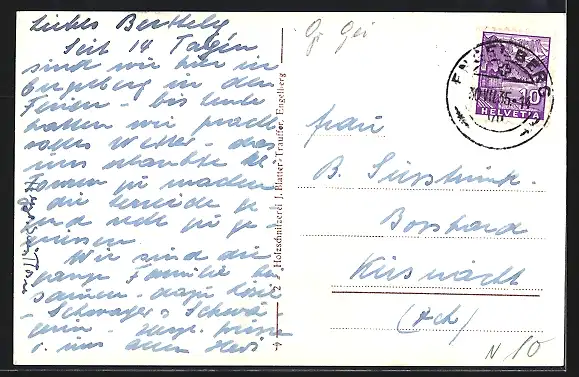 Liebes Berthely
Seit 14 Tagen
sind wir hier in
Engelberg in den
Ferien - bis heute
hatten wir pracht
volles Wetter - das
uns erlaubte kl.
Touren zu machen
die Freude ge
und recht zu ge-
niessen.
Wir sind die
ganze Familie bei
samen - dazu
- Schwager & Schwä
gerin - Herzl. Grüsse
v. uns allen Hedi
2 3 Holzschnitzerei J. Blatter-Trauffer, Engelberg
ENGELBERG
35-14
10
HELVETIA
Frau
B. Süsstrunk
Bosshard
Küsnacht
(Zch)
N 10